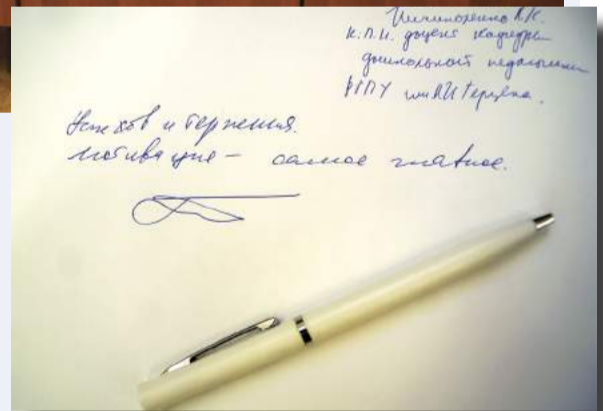 Ничипоренко Л.К.
к.п.н. доцент кафедры
дошкольной педагогики
РГПУ им А.И. Герцена.
Успехов и терпения.
мотивация – самое главное.